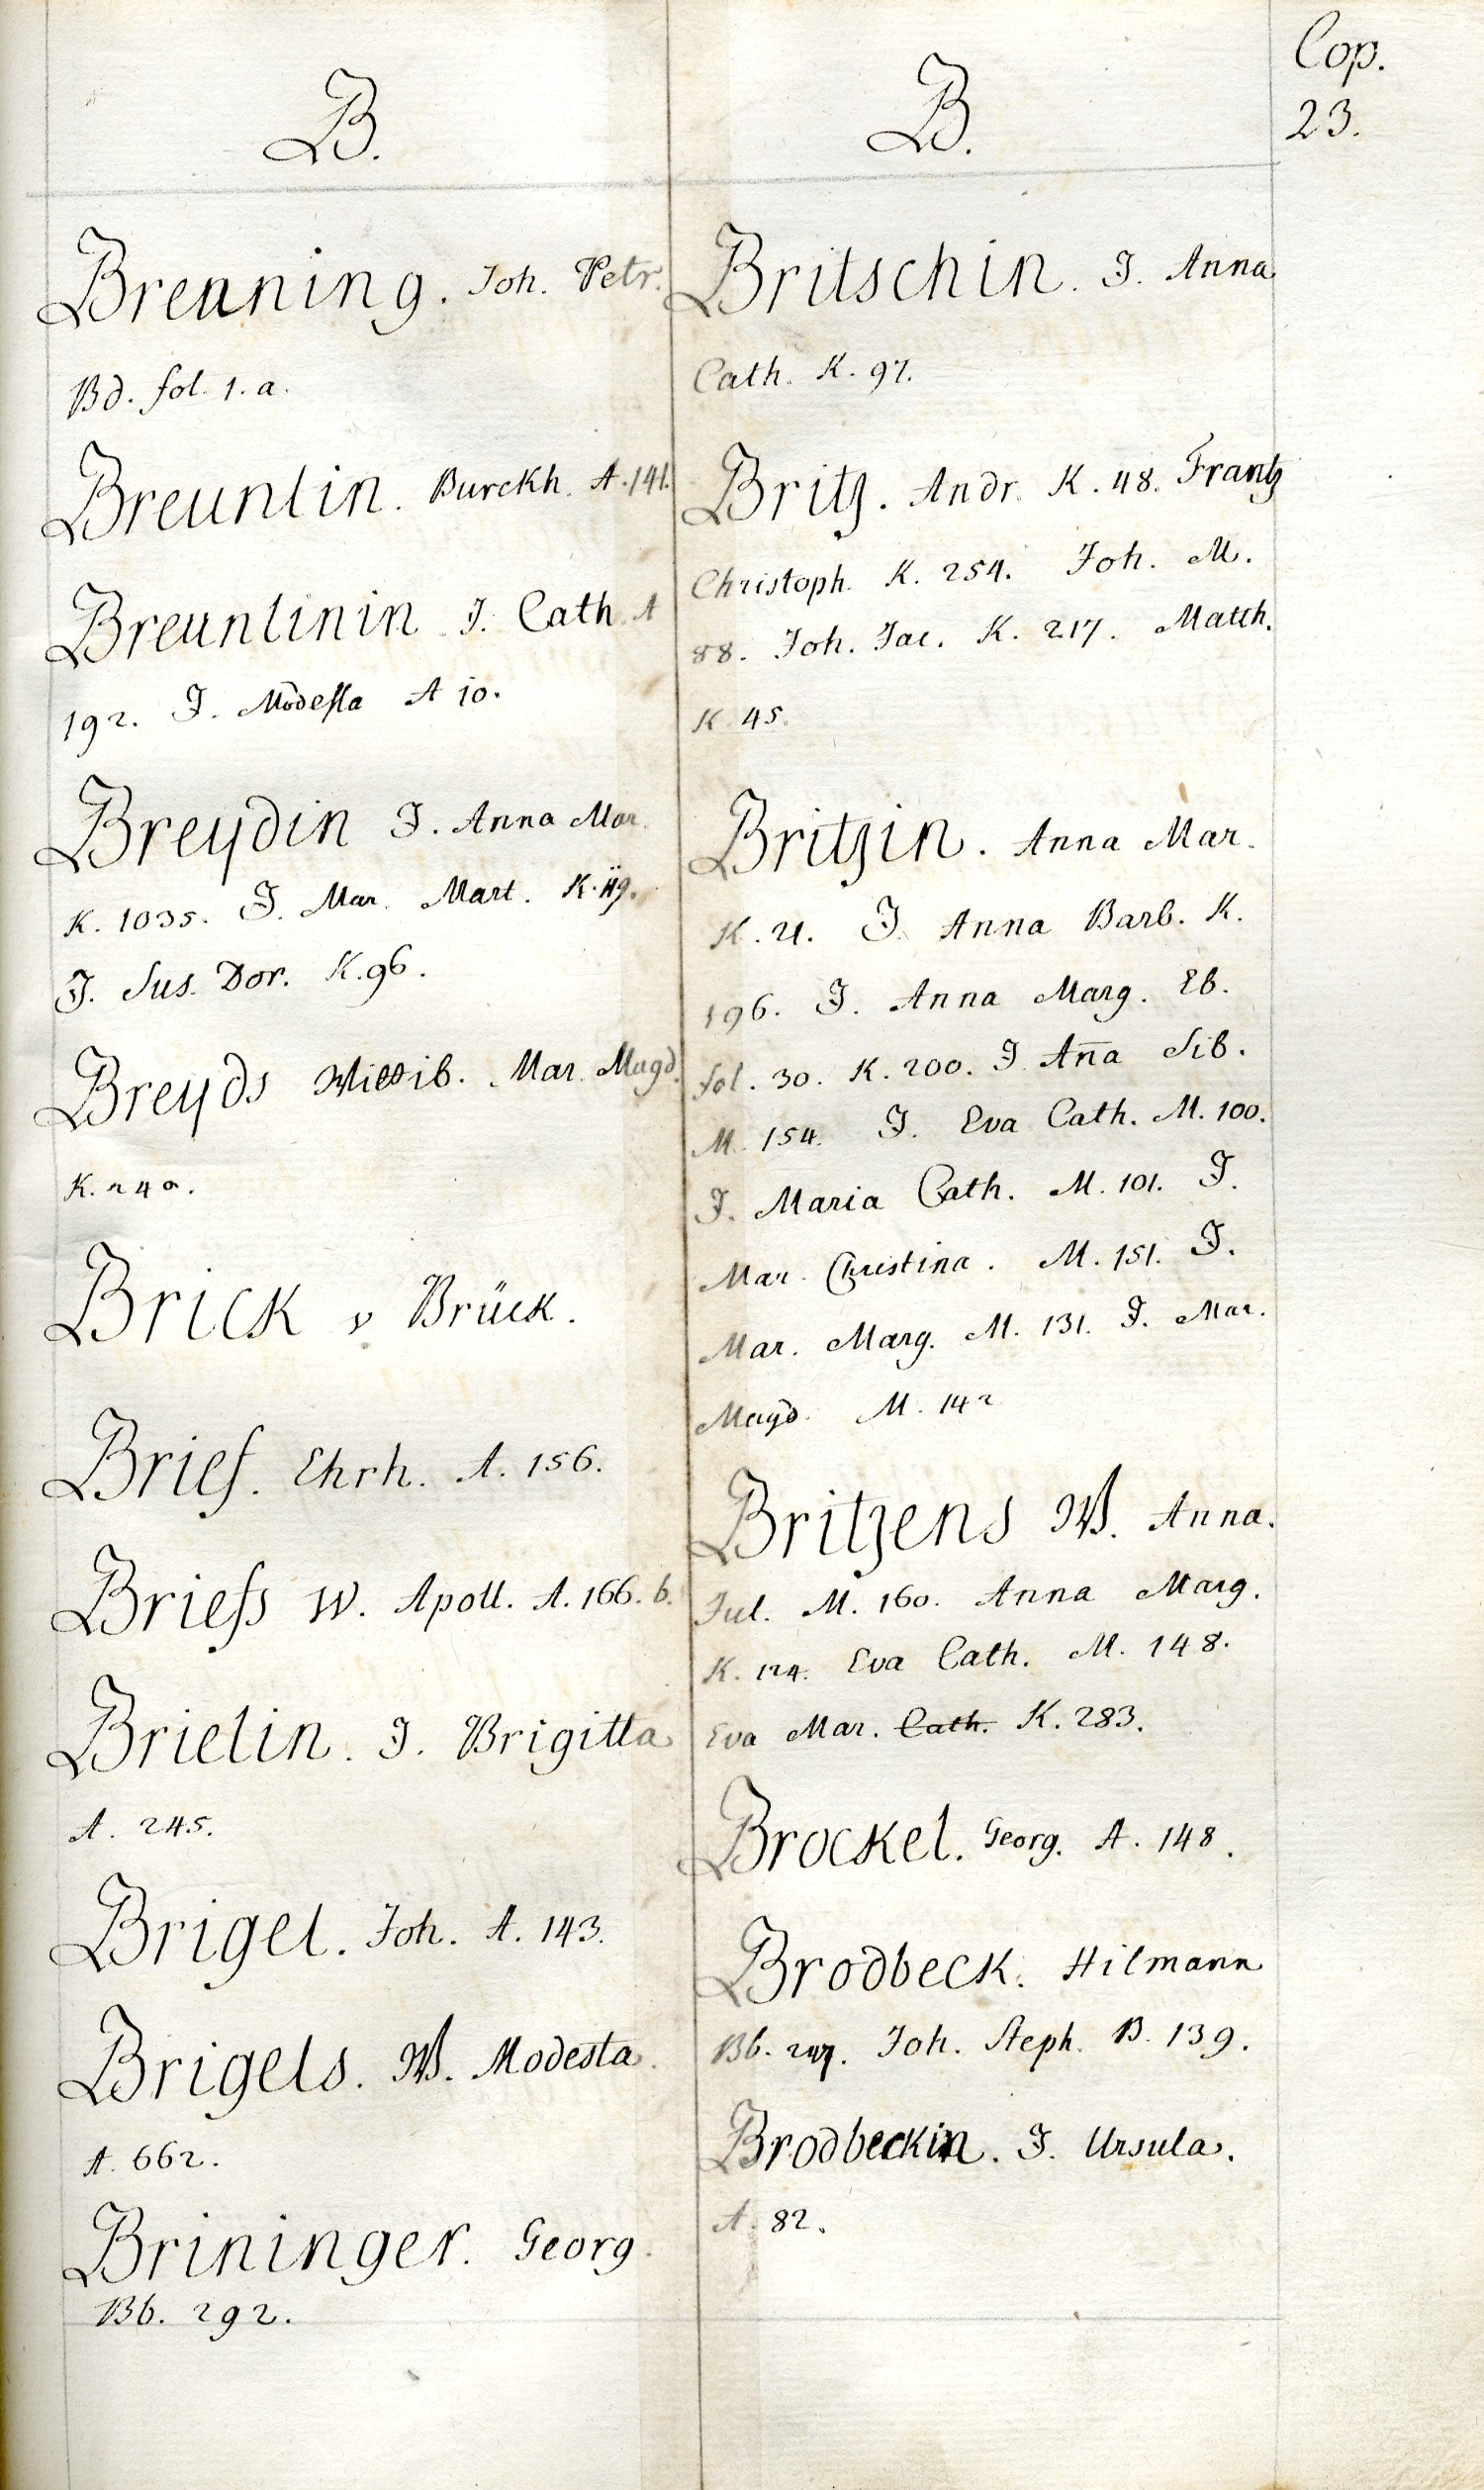 Cop.
23.
B.
Breuning. Joh. Petr.
Bd. fol. 1. a.
Breunlin. Burckh. A. 141.
Breunlinin J. Cath. A
192. J. Modesta A 10.
Breydin J. Anna Mar.
K. 1035. J. Mar. Mart. K.
J. Sus. Dor. K. 96.
Breyds Wittib. Mar. Magd.
K. 240.
Brick v Brück.
Brief. Ehrh. A. 156.
Briefs W. Apoll. A. 166. b.
Brielin. J. Brigitta
A. 245.
Brigel. Joh. A. 143.
Brigels. W. Modesta.
A. 662.
Brininger. Georg.
Bb. 292.
B.
Britschin. J. Anna
Cath. K. 97.
Britz. Andr. K. 48. Frantz
Christoph. K. 254. Joh. M.
88. Joh. Jac. K. 217. Matth.
K. 45.
Britzin. Anna Mar.
K. 21. J. Anna Barb. K.
196. J. Anna Marg. Eb.
fol. 30. K. 200. J. Aña Sib.
M. 154. J. Eva Cath. M. 100.
J. Maria Cath. M. 101. J.
Mar. Christina. M. 151. J.
Mar. Marg. M. 131. J. Mar.
Magd. M. 142
Britzens W. Anna.
Jul. M. 160. Anna Marg.
K. 124. Eva Cath. M. 148.
Eva Mar. Cath. K. 283.
Brockel. Georg. A. 148.
Brodbeck. Hilmann
Bb. 247. Joh. Steph. B. 139.
Brodbeckin. J. Ursula.
A. 82.